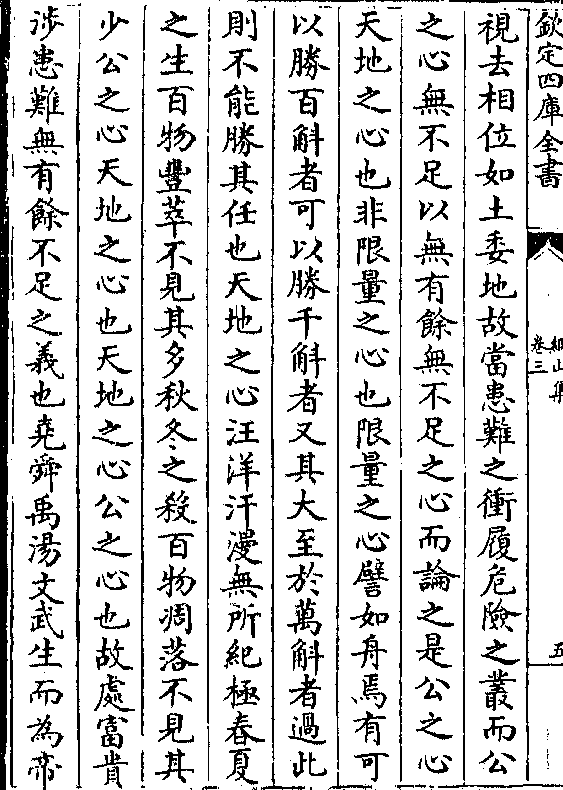 欽定四庫全書
卷三
五
視去相位如土委地故當患難之衝履危險之叢而公
之心無不足以無有餘無不足之心而論之是公之心
天地之心也非限量之心也限量之心譬如舟焉有可
以勝百斛者可以勝千斛者又其大至於萬斛者過此
則不能勝其任也天地之心汪洋汗漫無所紀極春夏
之生百物豐萃不見其多秋冬之殺百物凋落不見其
少公之心天地之心也天地之心公之心也故處富貴
涉患難無有餘不足之義也堯舜禹湯文武生而為帝